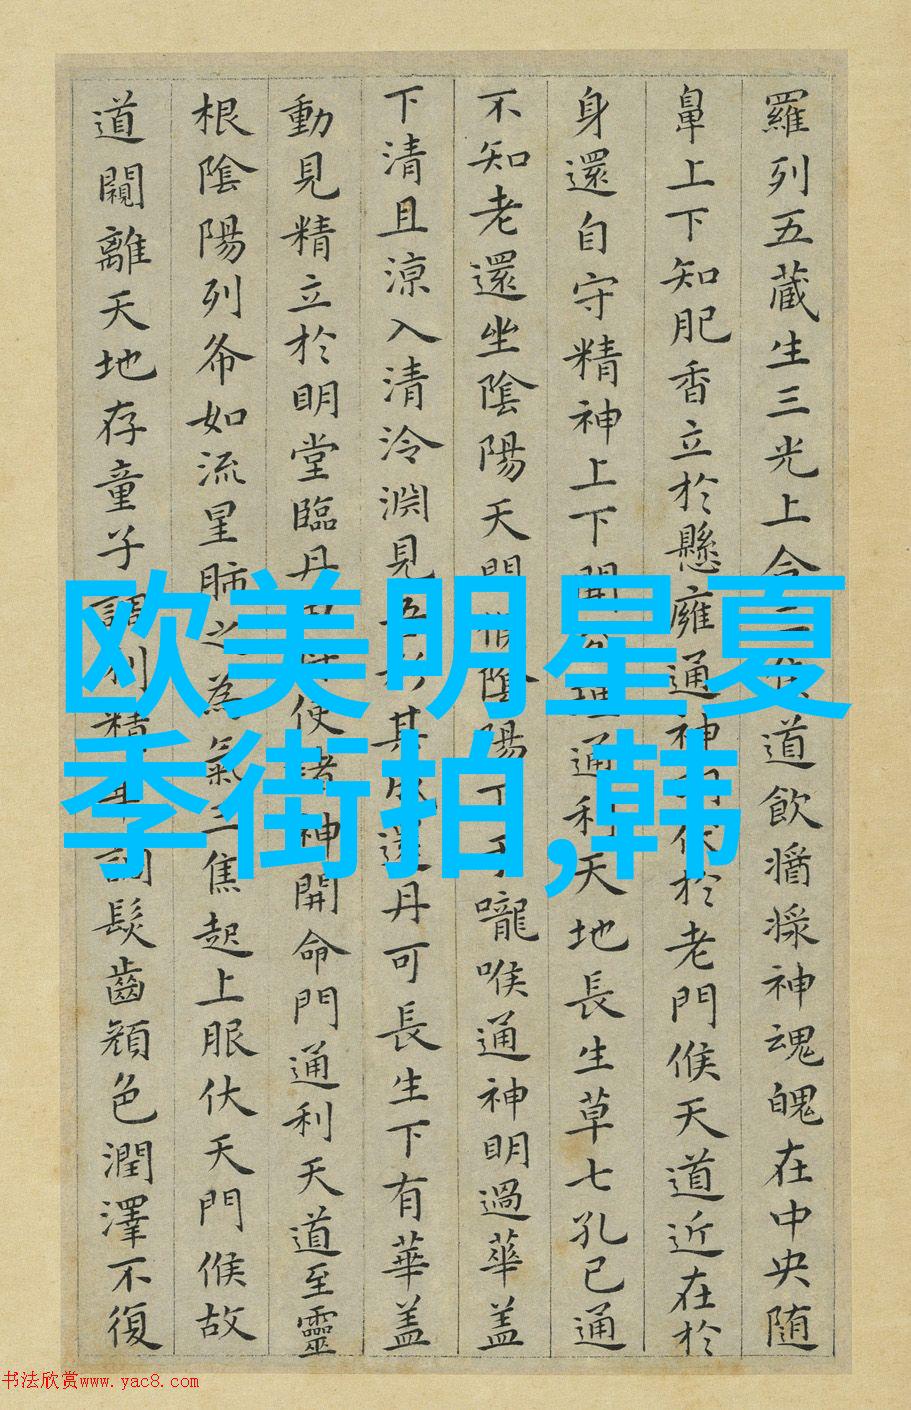 羅列五藏生三光上合
道飲醬滌神魂魄在中央隨
鼻上下知肥香立於懸廱通神
伏於老門候天道近在於
身還自守精神上下開
通利天地長生草七孔已通
不知老還坐陰陽天門候陰陽下
嚨喉通神明過華盖
下清且涼入清泠淵見吾形其成還丹可長生下有華盖
動見精立於明堂臨丹
使諸神開命門通利天道至靈
根陰陽列布如流星肺之為氣三焦起上服伏天門候故
道闚離天地存童子調利精
髮齒顏色潤澤不復
欧美明星夏
季街拍,韩
书法欣赏www.yac8.com